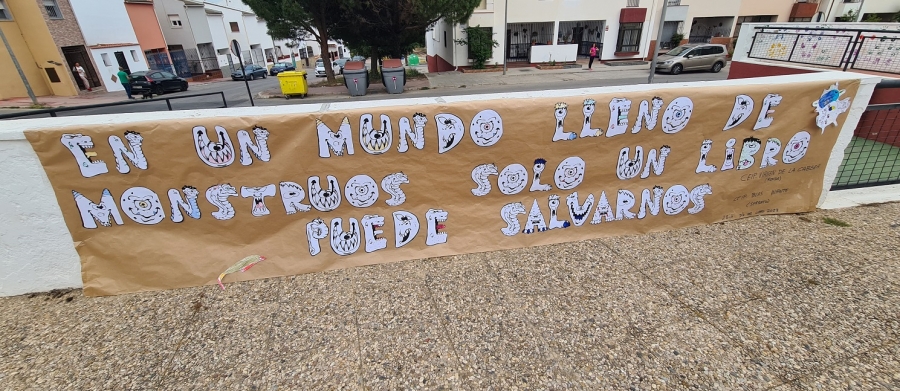 EN UN MUNDO LLENO DE
MONSTRUOS SOLO UN LIBRO
PUEDE SALVARNOS